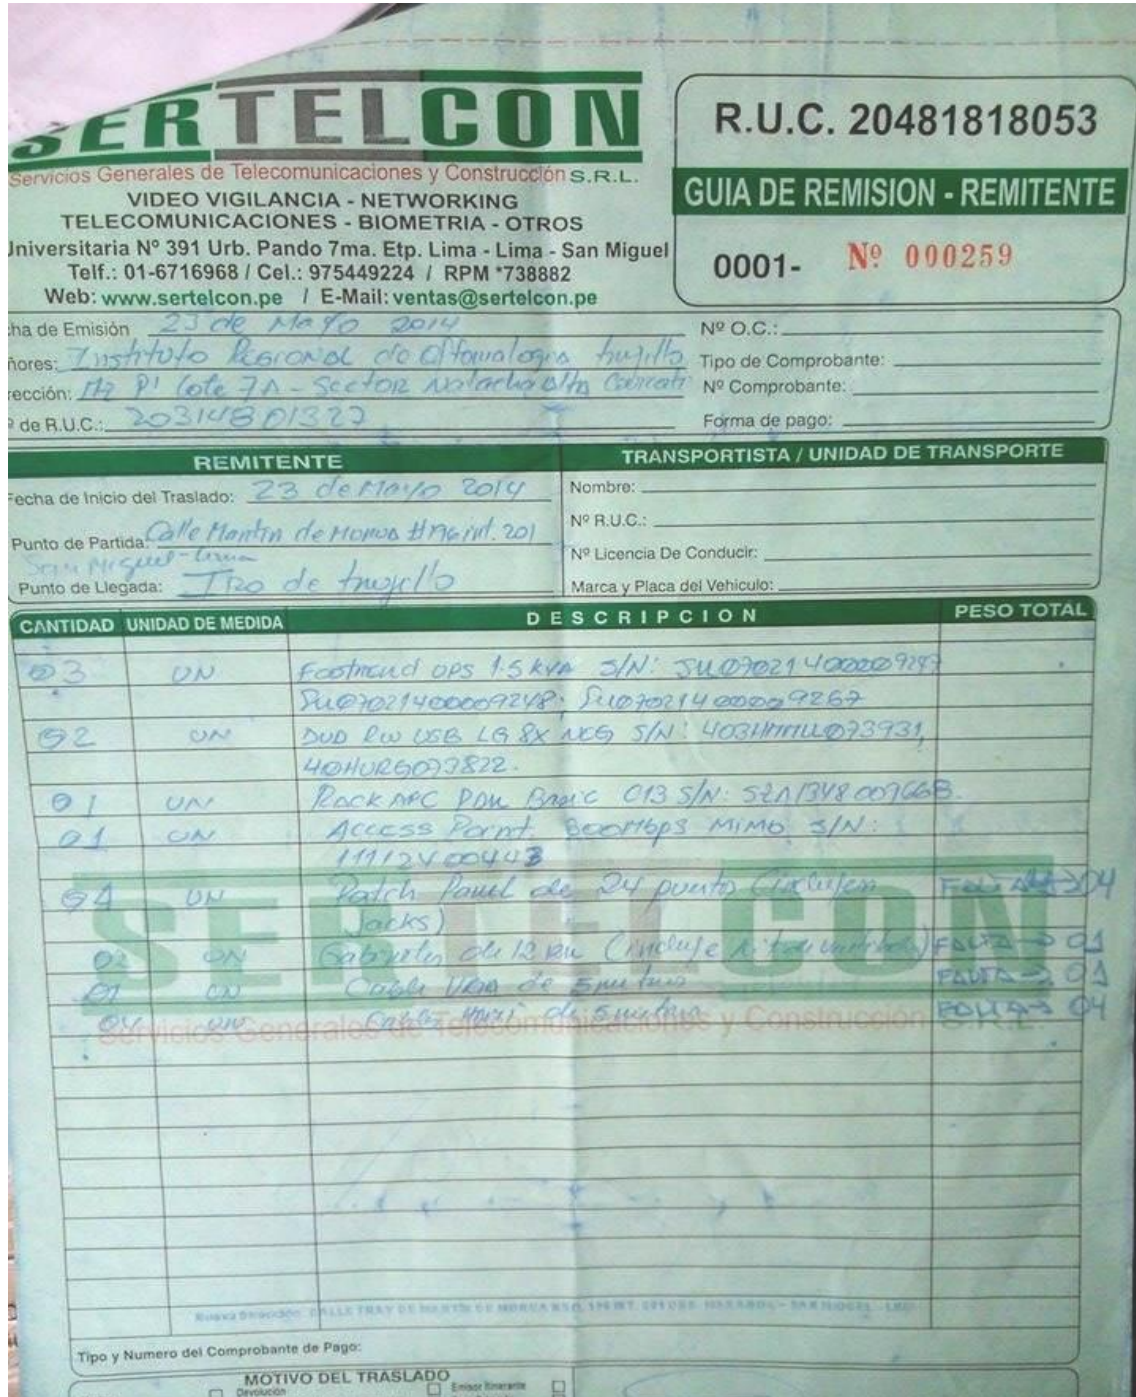 SERTELCON
Servicios Generales de Telecomunicaciones y Construcción S.R.L.
VIDEO VIGILANCIA - NETWORKING
TELECOMUNICACIONES - BIOMETRIA - OTROS
Universitaria Nº 391 Urb. Pando 7ma. Etp. Lima - Lima - San Miguel
Telf.: 01-6716968 / Cel.: 975449224 / RPM *738882
Web: www.sertelcon.pe / E-Mail: ventas@sertelcon.pe
R.U.C. 20481818053
GUIA DE REMISION - REMITENTE
0001- Nº 000259
cha de Emisión 23 de Mayo 2014
ñores: Instituto Regional de Oftamalogia trujillo
rección: Mz P' Lote 7A - Sector Natacha Alta
de R.U.C.: 20314801327
Nº O.C.:
Tipo de Comprobante:
Nº Comprobante:
Forma de pago:
REMITENTE
Fecha de Inicio del Traslado: 23 de Mayo 2014
Punto de Partida: Calle Martin de Morua #196 int. 201
San Miguel - Lima
Punto de Llegada: IRO de trujillo
TRANSPORTISTA / UNIDAD DE TRANSPORTE
Nombre:
Nº R.U.C.:
Nº Licencia De Conducir:
Marca y Placa del Vehiculo:
CANTIDAD UNIDAD DE MEDIDA DESCRIPCION PESO TOTAL
03 UN UPS 1.5 KVA S/N: SU07021400009247
SU07021400009248; SU07021400009267
02 UN DVD RW USB LG 8X NEG S/N:
01 UN Rack APC PDU Basic C13 S/N:
01 UN Access Point. 300Mbps MIMO S/N:
11112V00443
04 UN Patch Panel de 24 puertos (incluyen FALTA → 04
Jacks)
02 UN Gabinetes de 12 RU (incluye kit de ventilador) FALTA → 01
01 UN Cable VGA de 5 metros FALTA → 01
04 UN Cable de 5 metros FALTA → 04
SERTELCON
Servicios Generales de Telecomunicaciones y Construcción S.R.L.
Nueva Dirección: CALLE FRAY DE MARTIN DE MORUA NRO. 196 INT. 201 URB. MARANGA - SAN MIGUEL - LIMA
Tipo y Numero del Comprobante de Pago:
MOTIVO DEL TRASLADO
Devolución Emisor Itinerante